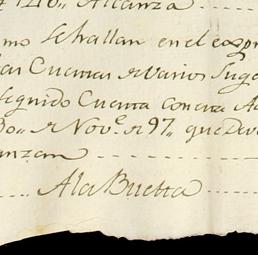 1210,, Alcanza
mo se hallan en el expr
las Cuentas de Varios Suge
Seguido Cuenta con esta A
30,, de Nov.e de 97,, que Deve
anzan
A la Buelta